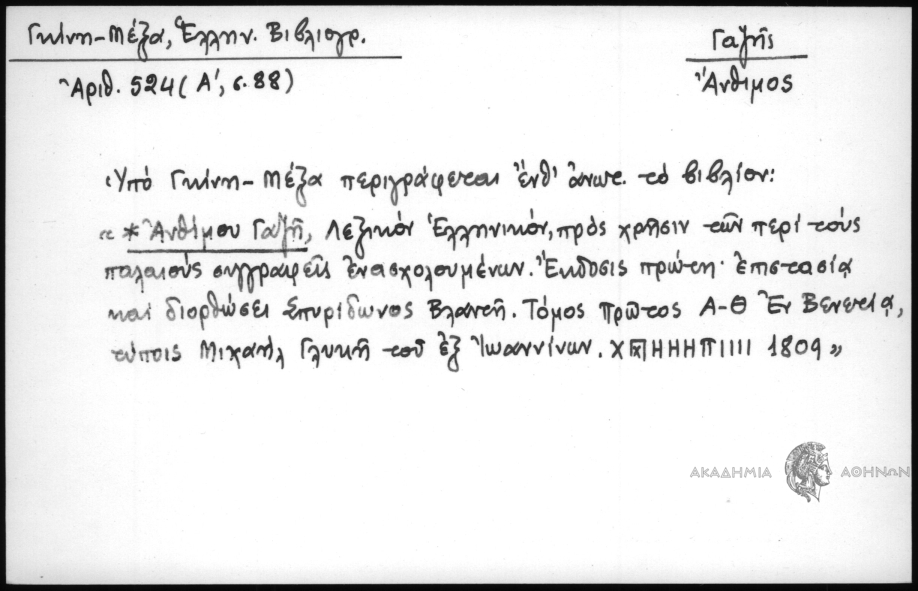 Γκίνη-Μέξα, Ἑλλην. Βιβλιογρ.
Ἀριθ. 524 (Α', σ. 88)
Γαζῆς
Ἄνθιμος
Ὑπό Γκίνη-Μέξα περιγράφεται ἔνθ' ἄνωτ. τό βιβλίον:
« * Ἀνθίμου Γαζῆ, Λεξικόν Ἑλληνικόν, πρός χρῆσιν τῶν περί τούς
παλαιούς συγγραφεῖς ἐνασχολουμένων. Ἔκδοσις πρώτη· ἐπιστασίᾳ
καί διορθώσει Σπυρίδωνος Βλαντῆ. Τόμος πρῶτος Α-Θ Ἐν Βενετίᾳ,
τύποις Μιχαήλ Γλυκῆ τοῦ ἐξ Ἰωαννίνων. Χ𐅅ΗΗΗΠΙΙΙΙ 1809 »
ΑΚΑΔΗΜΙΑ ΑΘΗΝΩΝ